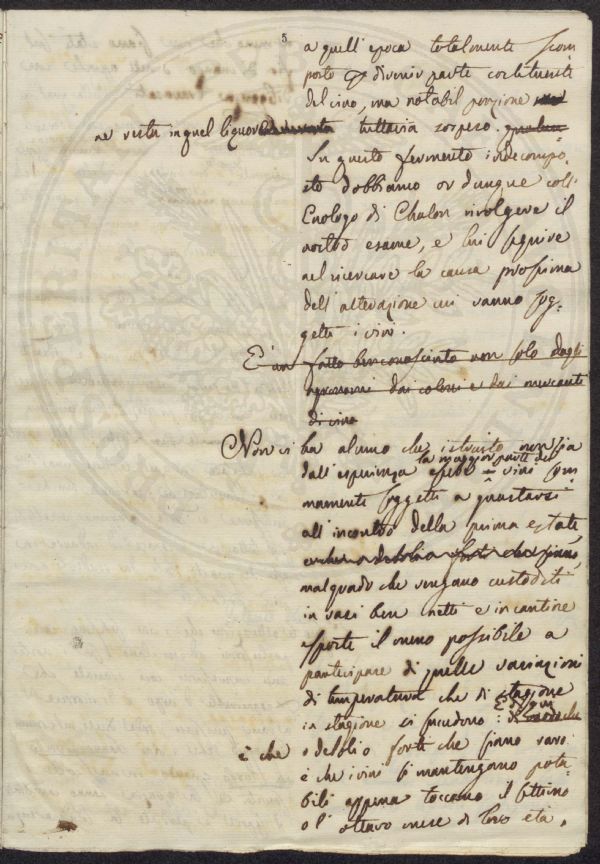 5
a quell'epoca totalmente scom
posto e divenir parte costituente
del vino, ma notabil porzione
ne resta in quel liquore tuttavia sospeso.
Su questo fermento indecompo-
sto dobbiamo or dunque coll'
Enologo di Chalon rivolgere il
nostro esame, e lui seguire
nel ricercare la causa prossima
dell'alterazione cui vanno sog-
getti i vini.
E' un fatto ben conosciuto non solo dagli
agronomi dai coloni e dai mercanti
di vino
Non vi ha alcuno che istruito non sia
dall'esperienza essere la maggior parte dei vini som
mamente soggetti a guastarsi
all'incontro della prima estate,
malgrado che vengano custoditi
in vasi ben netti e in cantine
esposte il meno possibile a
partecipare di quelle variazioni
di temperatura che di stagione
in stagione si succedono:
è che o deboli o forti che siano raro
è che i vini si mantengano pota-
bili appena toccano il settimo
o l'ottavo mese di loro età.